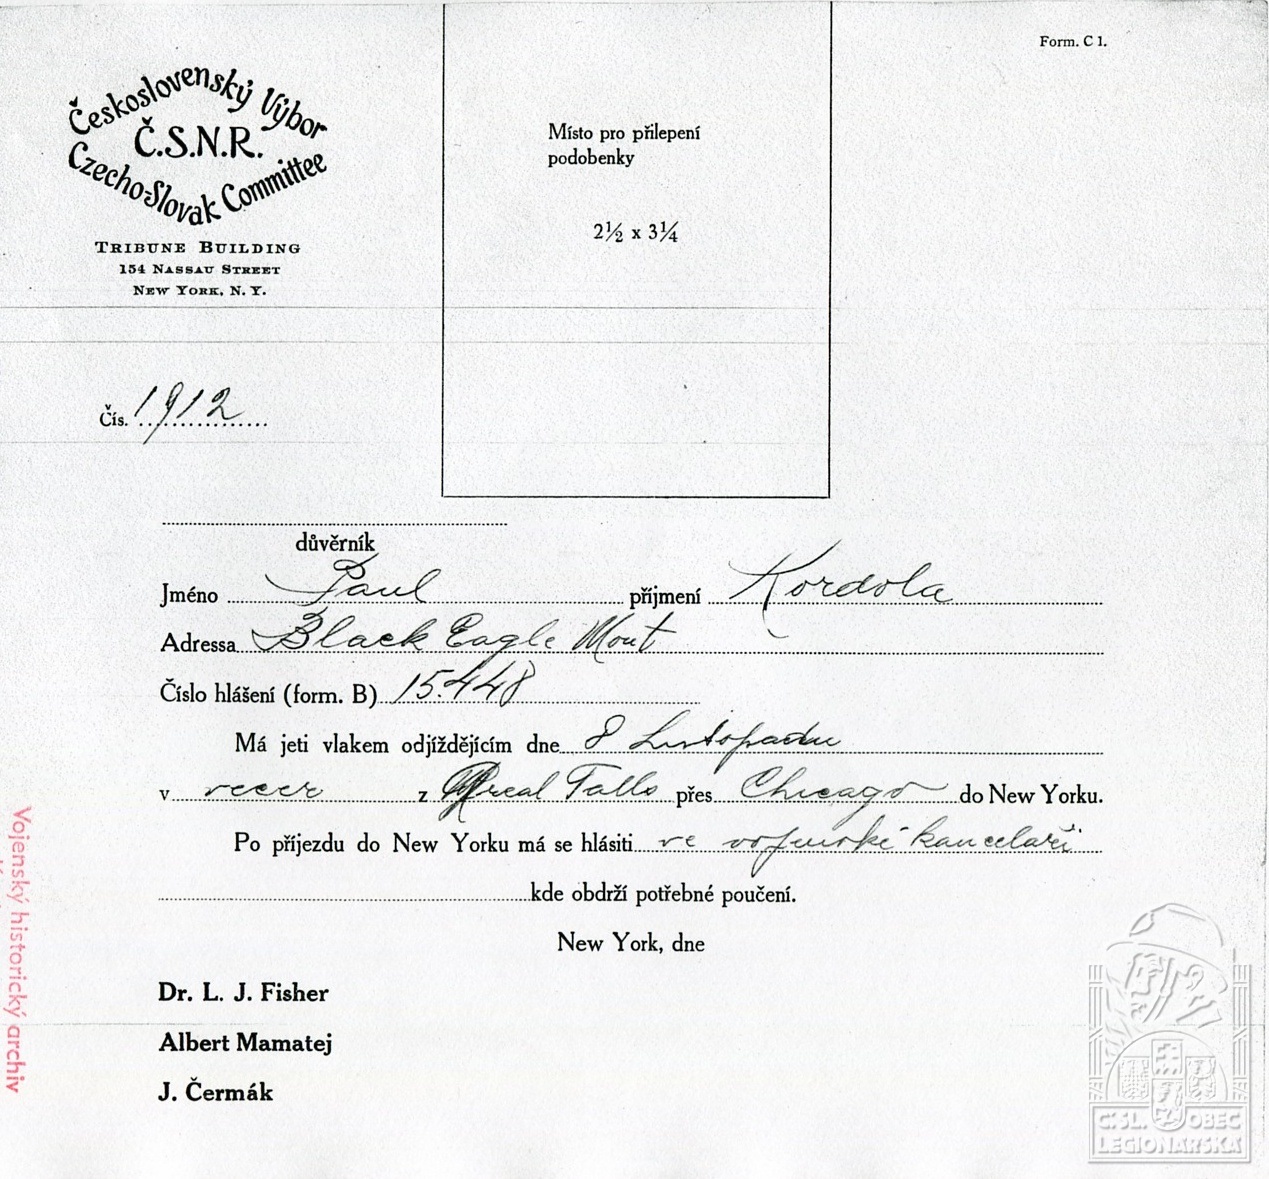 Form. C 1.
Československý Výbor
Č.S.N.R.
Czecho-Slovak Committee
TRIBUNE BUILDING
154 NASSAU STREET
NEW YORK, N. Y.
Místo pro přilepení
podobenky
2½ x 3¼
Čís. 1912
důvěrník
Jméno Paul příjmení Kordola
Adressa Black Eagle Mont
Číslo hlášení (form. B) 15.448
Má jeti vlakem odjíždějícím dne 8 Listopadu
v vecer z Great Falls přes Chicago do New Yorku.
Po příjezdu do New Yorku má se hlásiti ve vojenské kanceláři
kde obdrží potřebné poučení.
New York, dne
Dr. L. J. Fisher
Albert Mamatej
J. Čermák
Vojenský historický archiv
Č.SL. OBEC
LEGIONÁŘSKÁ